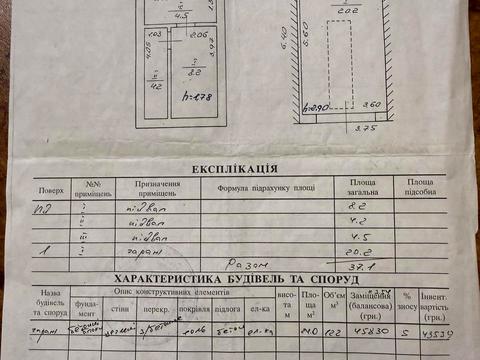 4.5
20.2
6.40
5.60
1.03
2.06
4.05
3.97
I
8.2
II
4.2
h=1.78
h=2.90
3.60
3.75
ЕКСПЛІКАЦІЯ
Поверх №№ приміщень Призначення приміщень Формула підрахунку площі Площа загальна Площа підсобна
ПД I підвал 8.2
II підвал 4.2
III підвал 4.5
1 I гараж 20.2
Разом 37.1
ХАРАКТЕРИСТИКА БУДІВЕЛЬ ТА СПОРУД
Назва будівель та споруд Опис конструктивних елементів висота м Площа м² Об'єм м³ Заміщення (балансова) (грн.) % зносу Інвент. вартість (грн.)
фундамент стіни перекр. покрівля підлога ел-ка
гараж бетон ел-ка 122 45830 5 43539